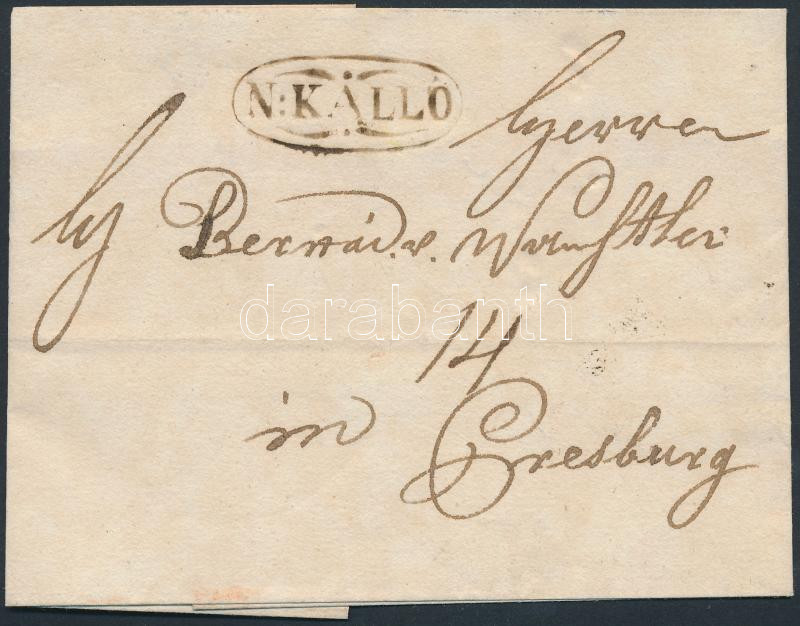 N:KÁLLÓ
Herrn
Bernád. v. Wachtler
14
in Presburg
darabanth